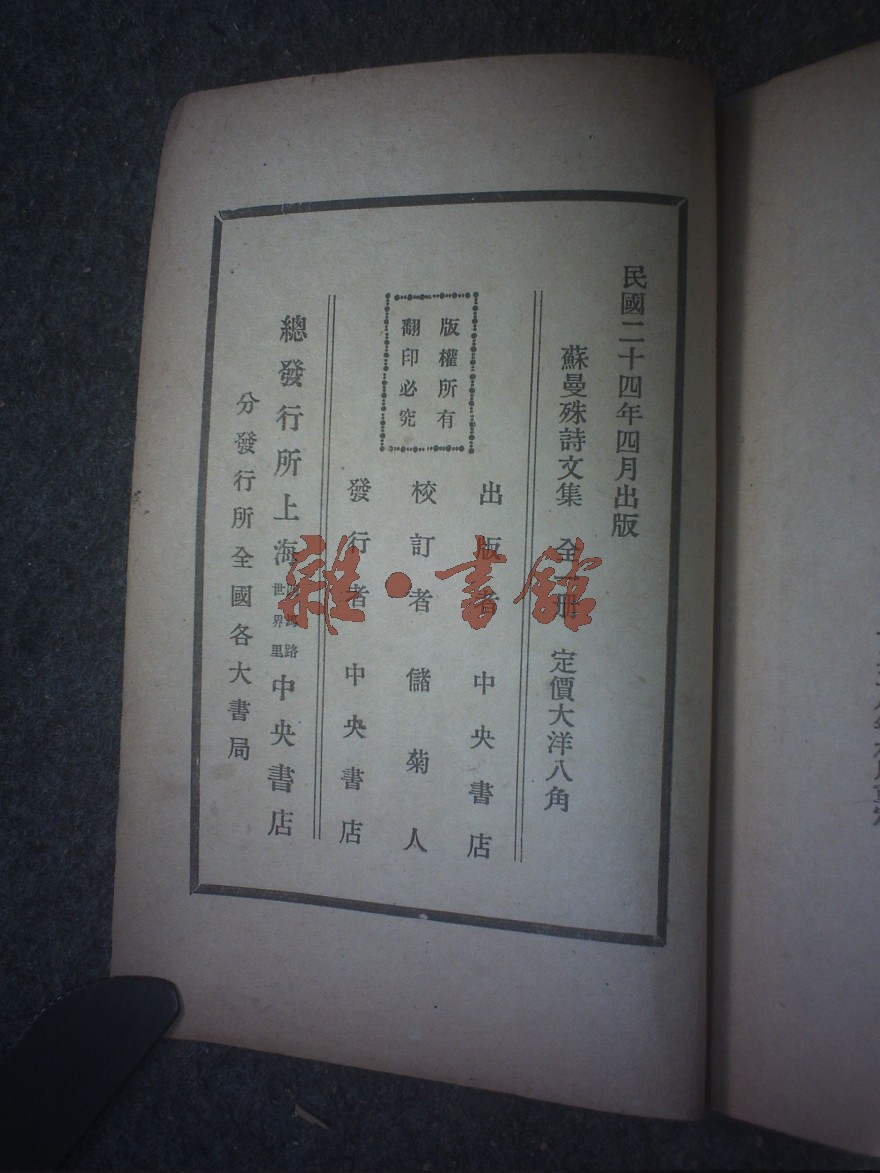 民國二十四年四月出版
蘇曼殊詩文集 全一册 定價大洋八角
版權所有
翻印必究
出版者 中央書店
校訂者 儲菊人
發行者 中央書店
總發行所上海 世界里 中央書店
分發行所全國各大書局
雜·書館